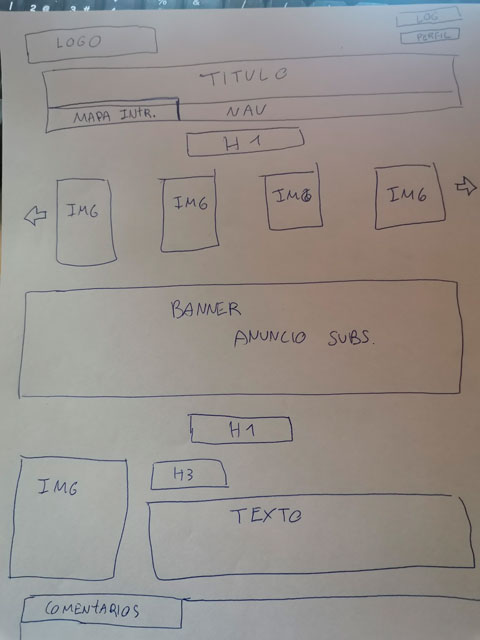 LOGO
LOG
PERFIL
TITULO
MAPA INTR.
NAV
H1
IMG
IMG
IMG
IMG
BANNER
ANUNCIO SUBS.
H1
IMG
H3
TEXTO
COMENTARIOS